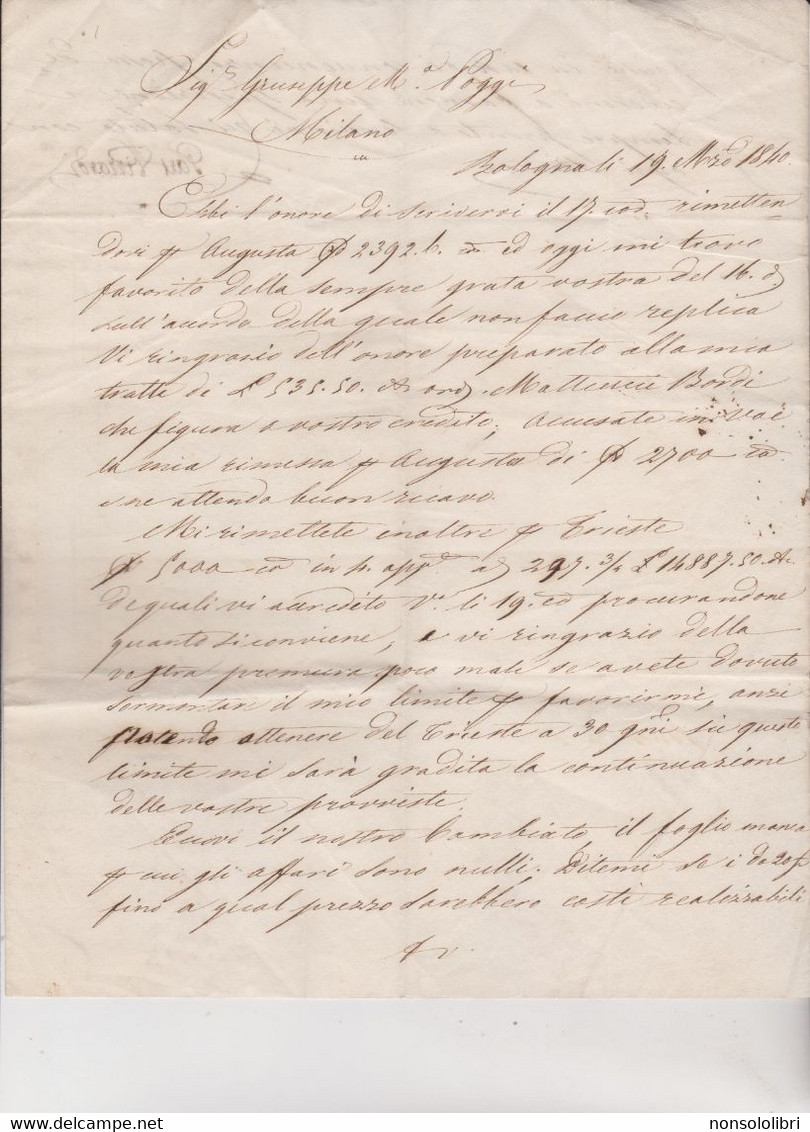 Sig.r Giuseppe M.a Poggi
Milano
Bologna li 19. Mrzo 1840.
Ebbi l'onore di scrivervi il 17. cod. rimetten
dovi p Augusta 2392.6. ed oggi mi trovo
favorito della sempre grata vostra del 16. d.
sull'accordo della quale non faccio replica
Vi ringrazio dell'onore preparato alla mia
tratta di £ 535.50. A ord. Matteucci Bordi
che figura a vostro credito; Accusate in voi
la mia rimessa p Augusta di 2700
e ne attendo buon ricavo.
Mi rimettete inoltre p Trieste
5000 in a 297.3/4 £ 14887.50. A.
de quali vi accredito V.a li 19. procurandone
quanto si conviene, e vi ringrazio della
vostra premura poco male se avete dovuto
sormontar il mio limite p favorirmi, anzi
potendo ottenere del Trieste a 30 gni su questo
limite mi sarà gradita la continuazione
delle vostre provviste.
Eccovi il nostro Cambiato, il foglio manca
p cui gli affari sono nulli. Ditemi se i da 20 f
fino a qual prezzo sarebbero costì realizzabili
nonsololibri
www.delcampe.net